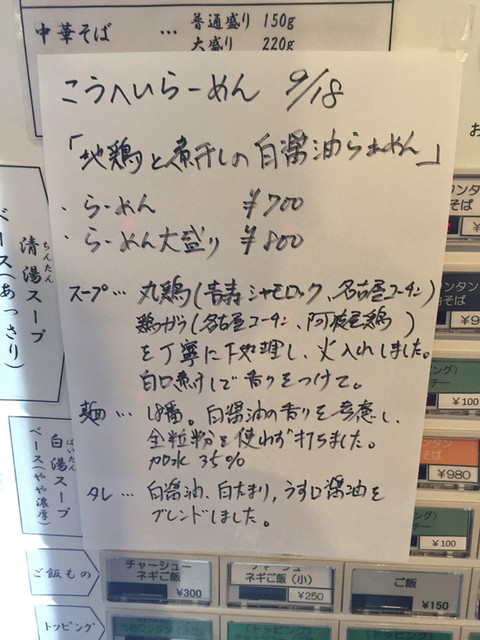 中華そば … 普通盛り 150g
大盛り 220g
こうへいらーめん 9/18
「地鶏と煮干しの白醤油らぁめん」
・らーめん ¥700
・らーめん大盛り ¥800
スープ… 丸鶏(青森シャモロック、名古屋コーチン)
鶏ガラ(名古屋コーチン、阿波尾鶏)
を丁寧に下処理し、火入れしました。
白口煮干しで香りをつけて。
麺… 18番。白醤油の香りを考慮し、
全粒粉を使わず打ちました。
加水35%
タレ… 白醤油、白たまり、うす口醤油を
ブレンドしました。
ちんたん
清湯スープ
ベース(あっさり)
ぱいたん
白湯スープ
ベース(やや濃厚)
ンタン
そば
¥100
¥980
¥100
ご飯もの
チャーシュー
ネギご飯
¥300
ネギご飯(小)
¥250
ご飯
¥150
トッピング